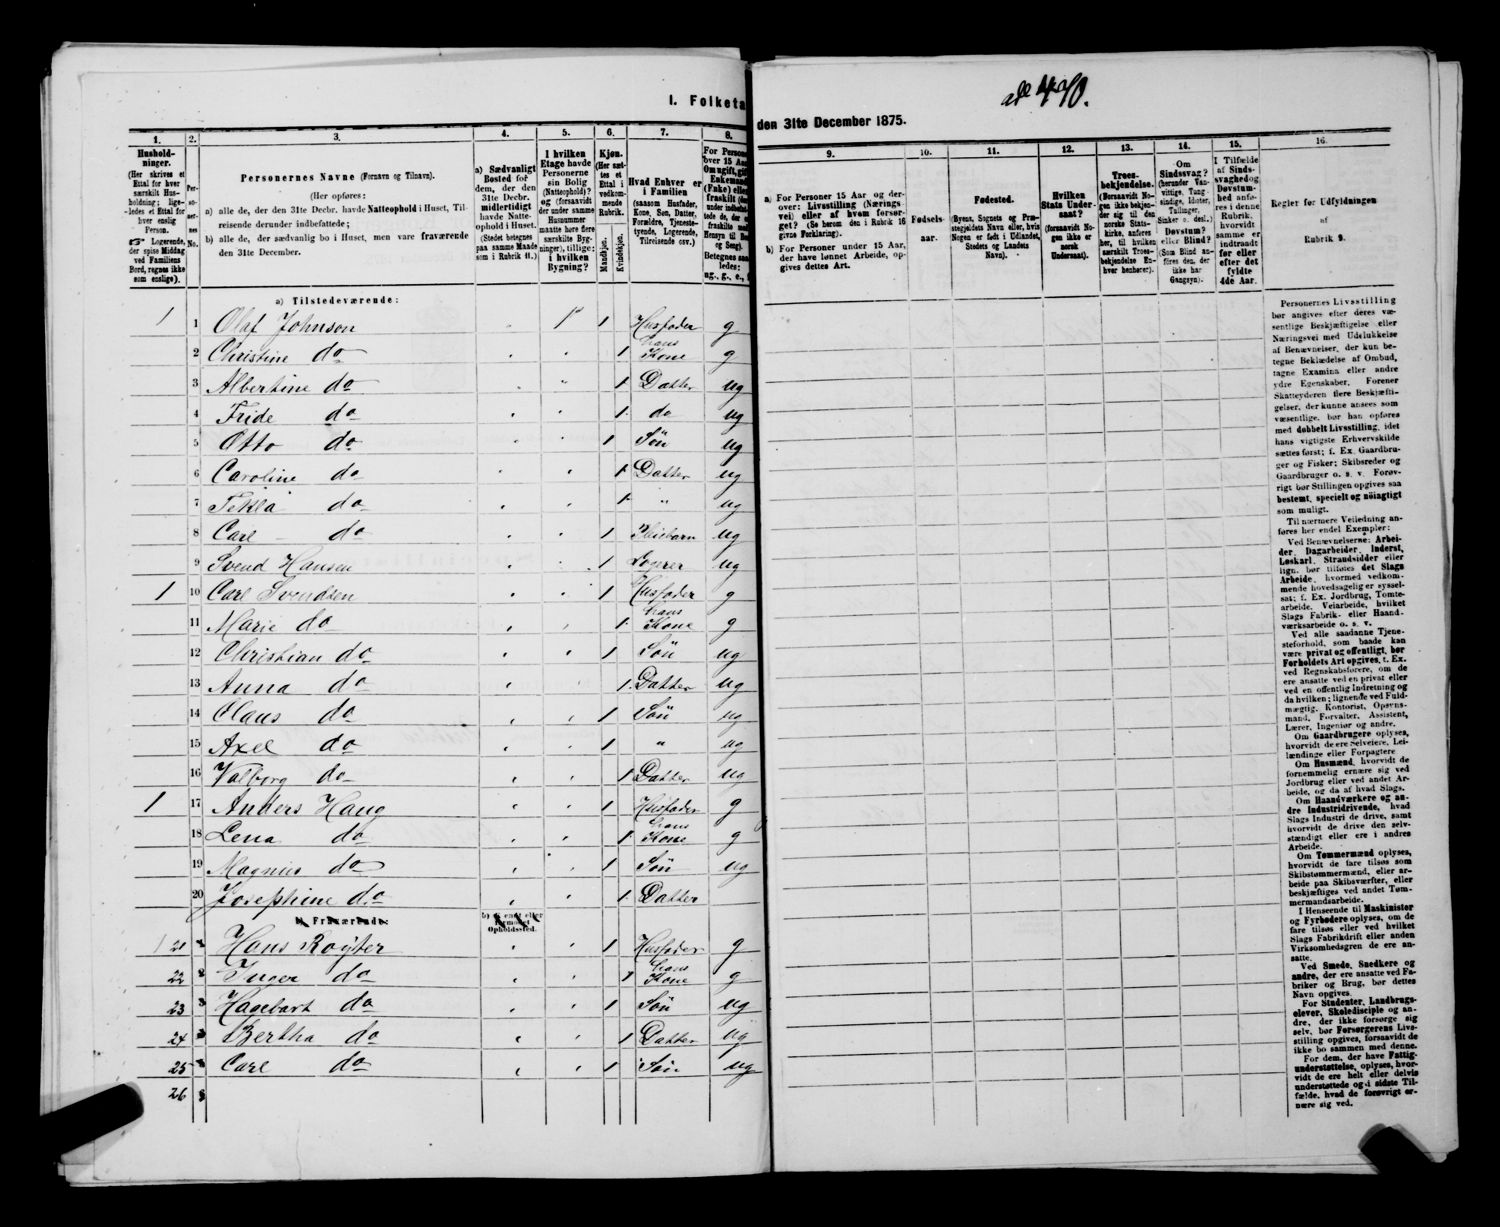 I. Folketa
all 440.
den 31te December 1875.
1. 2. 3. 4. 5. 6. 7. 8. 9. 10. 11. 12. 13. 14. 15. 16.
Hushold-
ninger.
(Her skrives et
Ettal for hver
særskilt Hus-
holdning; lige-
ledes et Ettal for
hver enslig
Person.
☞ Logerende,
der spise Middag
ved Familiens
Bord, regnes ikke
som enslige).
Personernes No.
Personernes Navne (Fornavn og Tilnavn).
(Her opføres:
a) alle de, der den 31te Decbr. havde Natteophold i Huset, Til-
reisende derunder indbefattede;
b) alle de, der sædvanlig bo i Huset, men vare fraværende
den 31te December.
a) Sædvanligt
Bosted for
dem, der den
31te Decbr.
midlertidigt
havde Natte-
ophold i Huset.
(Stedet betegnes
paa samme Maade
som i Rubrik 11.)
I hvilken
Etage havde
Personerne
sin Bolig
(Natteophold)?
og (forsaavidt
der under samme
Husnummer
maatte høre flere
særskilte Byg-
ninger), tillige:
i hvilken
Bygning?
Kjøn.
(Her sæt-
tes et
Ettal i
vedkom-
mende
Rubrik.
Mandkjøn.
Kvindekjøn.
Hvad Enhver er
i Familien
(saasom Husfader,
Kone, Søn, Datter,
Forældre, Tjeneste-
tyende, Logerende,
Tilreisende osv.)
For Persone
over 15 Aa
Om ugift, gif
Enkemand
(Enke) elle
fraskilt
a) For Personer 15 Aar og der-
over: Livsstilling (Nærings-
vei) eller af hvem forsør-
get? (Se herom den i Rubrik 16
givne Forklaring).
b) For Personer under 15 Aar,
der have lønnet Arbeide, op-
gives dettes Art.
Fødsels-
aar.
Fødested.
(Byens, Sognets og Præ-
stegjeldets Navn eller, hvis
Nogen er født i Udlandet,
Stedets og Landets
Navn).
Hvilken
Stats Under-
saat?
(forsaavidt No-
gen ikke er
norsk
Undersaat).
Troes-
bekjendelse.
(Forsaavidt No-
gen ikke bekjen-
der sig til den
norske Stats-
kirke, anføres
her, til hvilken
særskilt Troes-
bekjendelse En-
hver henhører).
Om
Sindssvag?
(herunder Van-
vittige, Tung-
sindige, Idioter,
Tullinger,
Sinker o. desl.)
Døvstum?
eller Blind?
(Som Blind an-
føres den, der
ikke har
Gangsyn).
I Tilfælde
af Sinds-
svaghed og
Døvstum-
hed anfø-
res i denne
Rubrik,
hvorvidt
samme er
indtraadt
før eller
efter det
fyldte
4de Aar.
Regler for Udfyldningen
af
Rubrik 9.
a) Tilstedeværende:
1 1 Olaf Johnson 1st 1 Husfader g
2 Christine do 1 hans Kone g
3 Albertine do 1 Datter ug
4 Fride do 1 do ug
5 Otto do 1 Søn ug
6 Caroline do 1 Datter ug
7 Tekla do 1 " ug
8 Carl - do 1 Pleiebarn ug
9 Svend Hansen 1 Logerer ug
1 10 Carl Svendsen 1 Husfader g
11 Marie do 1 hans Kone g
12 Christian do 1 Søn ug
13 Anna do 1 Datter ug
14 Claus do 1 Søn ug
15 Axel do 1 " ug
16 Valborg do 1 Datter ug
1 17 Anders Haug 1 Husfader g
18 Lena do 1 hans Kone g
19 Magnus do 1 Søn ug
20 Josephine do 1 Datter
b) Fraværende:
b) et endt eller
formodet
Opholdssted.
1 21 Hans Røyter 1 Husfader g
22 Inger do 1 hans Kone g
23 Hagebart do 1 Søn ug
24 Bertha do 1 Datter ug
25 Carl do 1 Søn ug
26
Personernes Livsstilling
bør angives efter deres væ-
sentlige Beskjæftigelse eller
Næringsvei med Udelukkelse
af Benævnelser, der kun be-
tegne Beklædelse af Ombud,
tagne Examina eller andre
ydre Egenskaber. Forener
Skatteyderen flere Beskjæfti-
gelser, der kunne ansees som
væsentlige, bør han opføres
med dobbelt Livsstilling, idet
hans vigtigste Erhvervskilde
sættes først; f. Ex. Gaardbru-
ger og Fisker; Skibsreder og
Gaardbruger o. s. v. Forøv-
rigt bør Stillingen opgives saa
bestemt, specielt og nöiagtigt
som muligt.
Til nærmere Veiledning an-
føres her endel Exempler:
Ved Benævnelserne: Arbei-
der, Dagarbeider, Inderst,
Løskarl, Strandsidder eller
lign. bør tilføies det Slags
Arbeide, hvormed vedkom-
mende hovedsagelig er syssel-
sat; f. Ex. Jordbrug, Tomte-
arbeide, Veiarbeide, hvilket
Slags Fabrik- eller Haand-
værksarbeide o. s. v.
Ved alle saadanne Tjene-
steforhold, som baade kan
være privat og offentligt, bør
Forholdets Art opgives, t. Ex.
ved Regnskabsførere, om de
ere ansatte ved en privat eller
ved en offentlig Indretning og
da hvilken; lignende ved Fuld-
mægtig, Kontorist, Opsyns-
mand, Forvalter, Assistent,
Lærer, Ingeniør og andre.
Om Gaardbrugere oplyses,
hvorvidt de ere Selveiere, Lei-
lændinge eller Forpagtere
Om Husmænd, hvorvidt de
fornemmelig ernære sig ved
Jordbrug eller ved andet Ar-
beide, og da af hvad Slags.
Om Haandværkere og an-
dre Industridrivende, hvad
Slags Industri de drive, samt
hvorvidt de drive den selv-
stændigt eller ere i andres
Arbeide.
Om Tømmermænd oplyses,
hvorvidt de fare tilsøs som
Skibstømmermænd, eller ar-
beide paa Skibsværfter, eller
beskjæftiges ved andet Tøm-
mermandsarbeide.
I Henseende til Maskinister
og Fyrbødere oplyses, om de
fare tilsøs eller ved hvilket
Slags Fabrikdrift eller anden
Virksomhedsgren de ere an-
satte.
Ved Smede, Snedkere og
andre, der ere ansatte ved Fa-
briker og Brug, bør dettes
Navn opgives.
For Studenter, Landbrugs-
elever, Skoledisciple og an-
dre, der ikke forsørge sig
selv, bør Forsørgerens Livs-
stilling opgives, forsaavidt de
ikke bo sammen med denne.
For dem, der have Fattig-
understøttelse, oplyses, hvor-
vidt de ere helt eller delvis
understøttede og i sidste Til-
fælde, hvad de forøvrigt er-
nære sig ved.